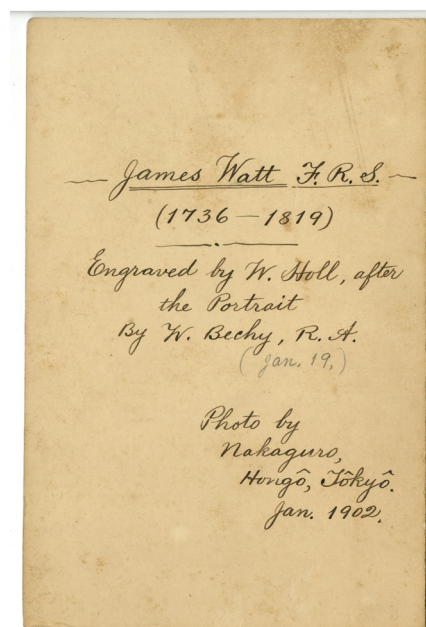 James Watt F.R.S.
(1736 — 1819)
Engraved by W. Holl, after
the Portrait
By W. Bechy, R. A.
(Jan. 19.)
Photo by
Nakaguro,
Hongô, Tôkyô.
Jan. 1902.